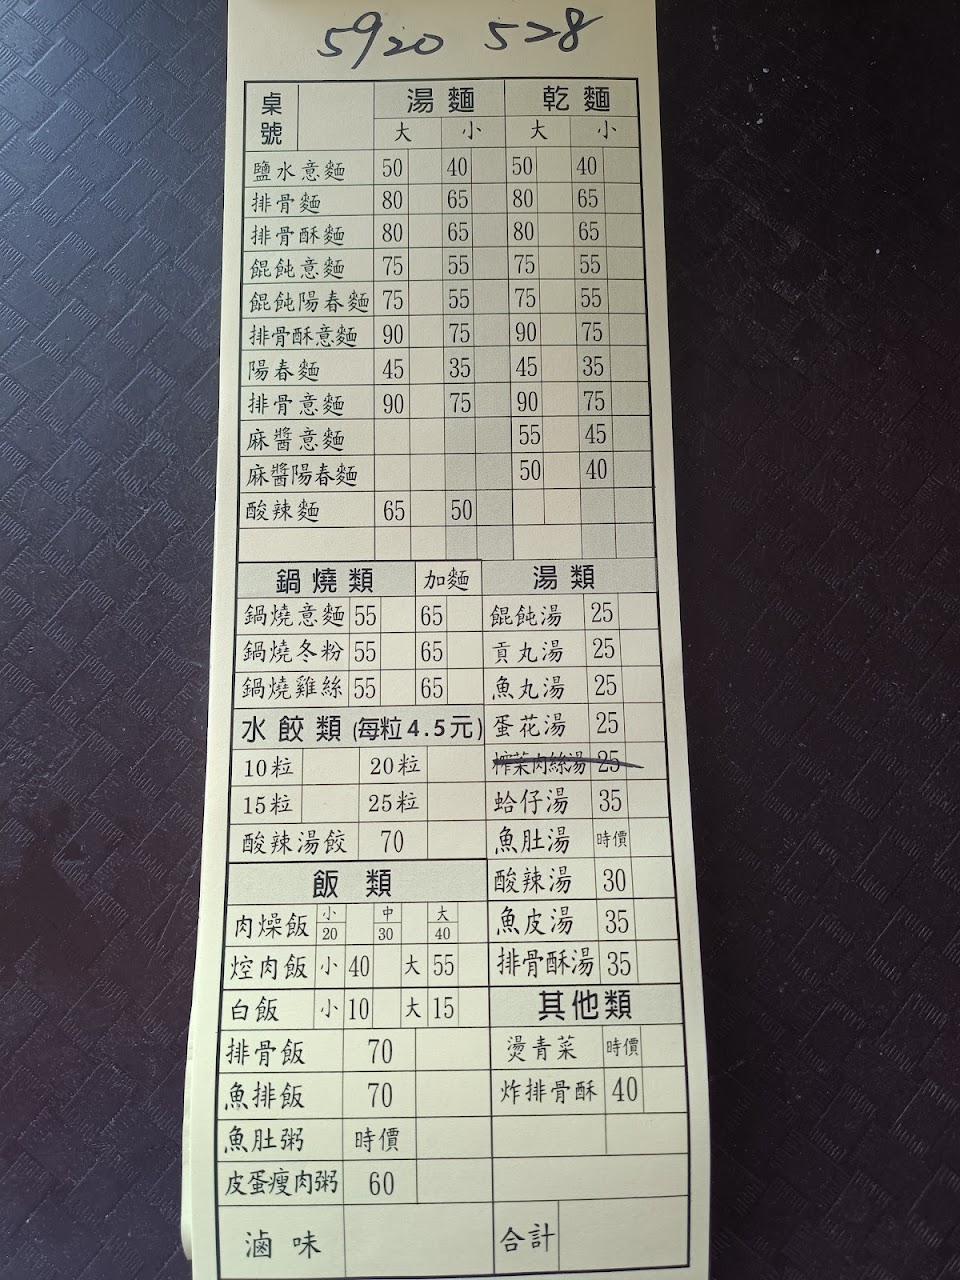 5920 528
桌號 湯麵 乾麵
大 小 大 小
鹽水意麵 50 40 50 40
排骨麵 80 65 80 65
排骨酥麵 80 65 80 65
餛飩意麵 75 55 75 55
餛飩陽春麵 75 55 75 55
排骨酥意麵 90 75 90 75
陽春麵 45 35 45 35
排骨意麵 90 75 90 75
麻醬意麵 55 45
麻醬陽春麵 50 40
酸辣麵 65 50
鍋燒類 加麵
鍋燒意麵 55 65
鍋燒冬粉 55 65
鍋燒雞絲 55 65
水餃類(每粒4.5元)
10粒 20粒
15粒 25粒
酸辣湯餃 70
飯類
肉燥飯 小20 中30 大40
焢肉飯 小 40 大 55
白飯 小 10 大 15
排骨飯 70
魚排飯 70
魚肚粥 時價
皮蛋瘦肉粥 60
滷味
湯類
餛飩湯 25
貢丸湯 25
魚丸湯 25
蛋花湯 25
榨菜肉絲湯 25
蛤仔湯 35
魚肚湯 時價
酸辣湯 30
魚皮湯 35
排骨酥湯 35
其他類
燙青菜 時價
炸排骨酥 40
合計